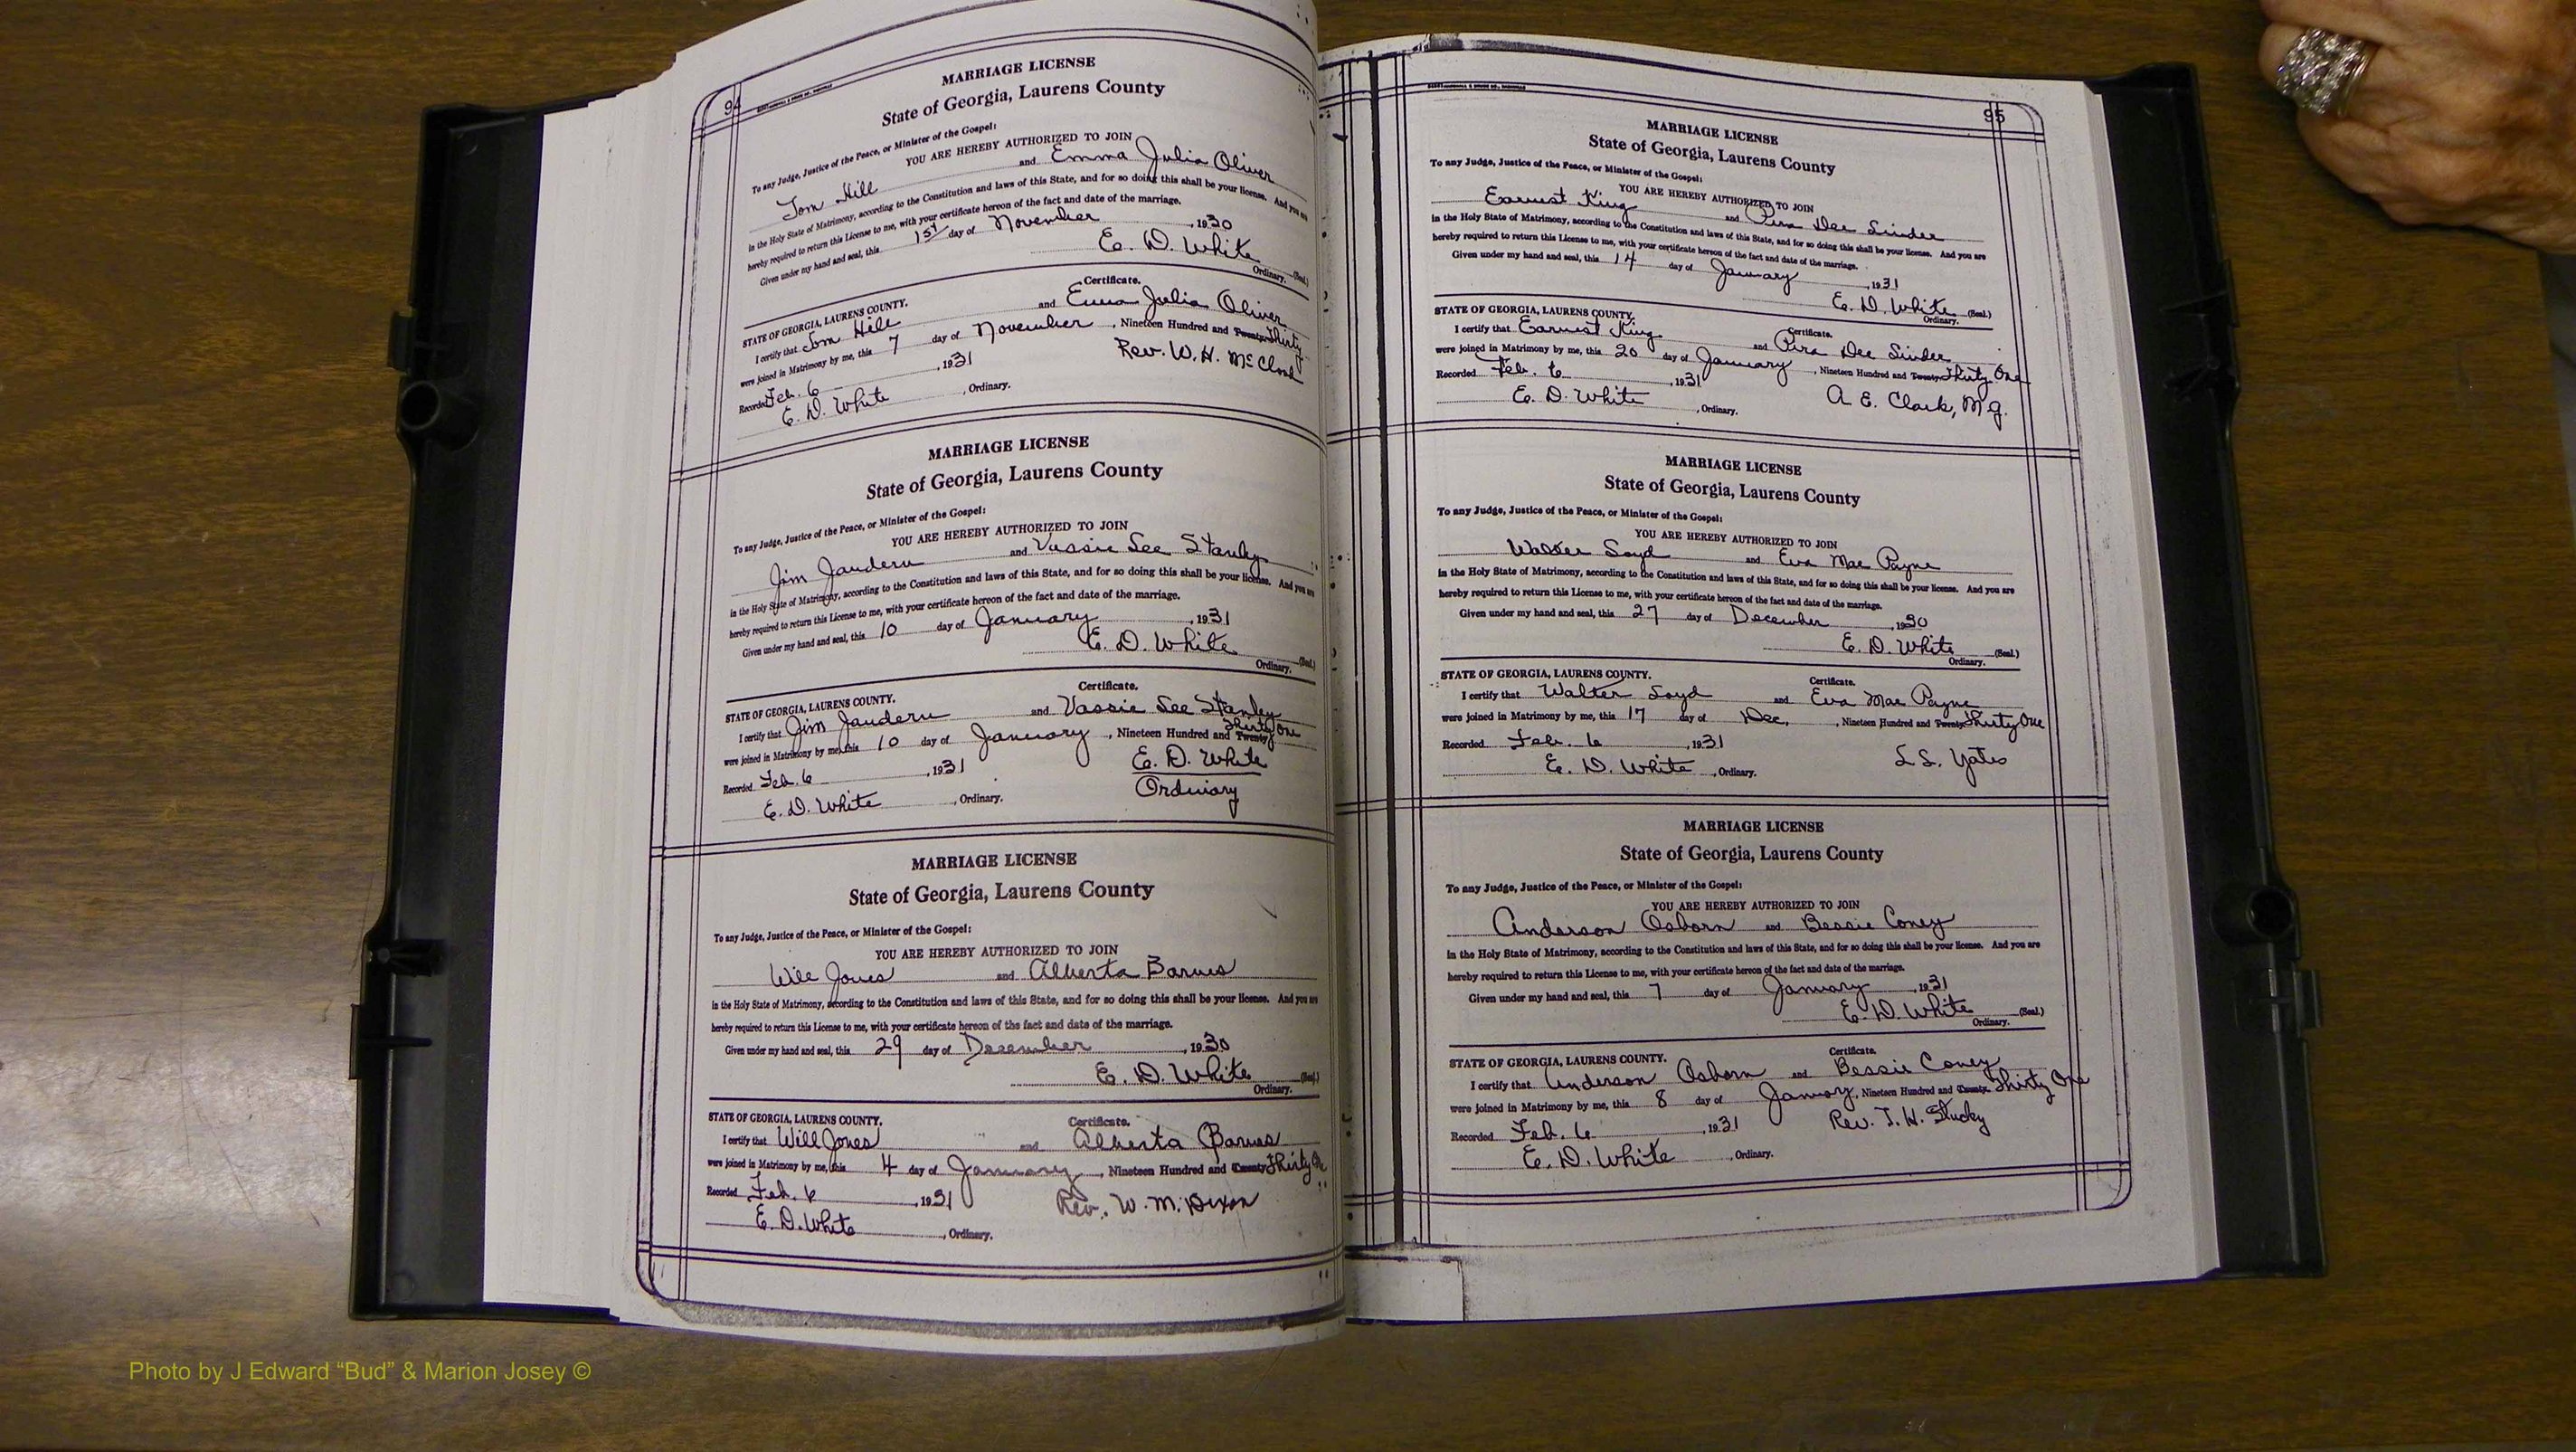 94
MARRIAGE LICENSE
State of Georgia, Laurens County
To any Judge, Justice of the Peace, or Minister of the Gospel:
YOU ARE HEREBY AUTHORIZED TO JOIN
Tom Hill and Emma Julia Oliver
in the Holy State of Matrimony, according to the Constitution and laws of this State, and for so doing this shall be your license. And you are
hereby required to return this License to me, with your certificate hereon of the fact and date of the marriage.
Given under my hand and seal, this 1st day of November, 1930
E. D. White (Seal.)
Ordinary.
STATE OF GEORGIA, LAURENS COUNTY. Certificate.
I certify that Tom Hill and Emma Julia Oliver
were joined in Matrimony by me, this 7 day of November, Nineteen Hundred and Twenty Thirty
Recorded Feb. 6, 1931 Rev. W. H. 
E. D. White, Ordinary.
MARRIAGE LICENSE
State of Georgia, Laurens County
To any Judge, Justice of the Peace, or Minister of the Gospel:
YOU ARE HEREBY AUTHORIZED TO JOIN
Jim and Vassie Lee Stanley
in the Holy State of Matrimony, according to the Constitution and laws of this State, and for so doing this shall be your license. And you are
hereby required to return this License to me, with your certificate hereon of the fact and date of the marriage.
Given under my hand and seal, this 10 day of January, 1931
E. D. White (Seal.)
Ordinary.
STATE OF GEORGIA, LAURENS COUNTY. Certificate.
I certify that Jim and Vassie Lee Stanley
were joined in Matrimony by me, this 10 day of January, Nineteen Hundred and Twenty Thirty One
Recorded Feb. 6, 1931 E. D. White
E. D. White, Ordinary. Ordinary
MARRIAGE LICENSE
State of Georgia, Laurens County
To any Judge, Justice of the Peace, or Minister of the Gospel:
YOU ARE HEREBY AUTHORIZED TO JOIN
Will Jones and Alberta Barnes
in the Holy State of Matrimony, according to the Constitution and laws of this State, and for so doing this shall be your license. And you are
hereby required to return this License to me, with your certificate hereon of the fact and date of the marriage.
Given under my hand and seal, this 29 day of December, 1930
E. D. White (Seal.)
Ordinary.
STATE OF GEORGIA, LAURENS COUNTY. Certificate.
I certify that Will Jones and Alberta Barnes
were joined in Matrimony by me, this 4 day of January, Nineteen Hundred and Twenty Thirty One
Recorded Feb. 6, 1931 Rev. W. M. Dixon
E. D. White, Ordinary.
95
MARRIAGE LICENSE
State of Georgia, Laurens County
To any Judge, Justice of the Peace, or Minister of the Gospel:
YOU ARE HEREBY AUTHORIZED TO JOIN
Earnest King and Dee
in the Holy State of Matrimony, according to the Constitution and laws of this State, and for so doing this shall be your license. And you are
hereby required to return this License to me, with your certificate hereon of the fact and date of the marriage.
Given under my hand and seal, this 14 day of January, 1931
E. D. White (Seal.)
Ordinary.
STATE OF GEORGIA, LAURENS COUNTY. Certificate.
I certify that Earnest King and Dee
were joined in Matrimony by me, this 20 day of January, Nineteen Hundred and Twenty Thirty One
Recorded Feb. 6, 1931
E. D. White, Ordinary. A. E. Clark, M.G.
MARRIAGE LICENSE
State of Georgia, Laurens County
To any Judge, Justice of the Peace, or Minister of the Gospel:
YOU ARE HEREBY AUTHORIZED TO JOIN
Walter Loyd and Eva Mae Payne
in the Holy State of Matrimony, according to the Constitution and laws of this State, and for so doing this shall be your license. And you are
hereby required to return this License to me, with your certificate hereon of the fact and date of the marriage.
Given under my hand and seal, this 27 day of December, 1930
E. D. White (Seal.)
Ordinary.
STATE OF GEORGIA, LAURENS COUNTY. Certificate.
I certify that Walter Loyd and Eva Mae Payne
were joined in Matrimony by me, this 17 day of Dec., Nineteen Hundred and Twenty Thirty One
Recorded Feb. 6, 1931
E. D. White, Ordinary. L. L. Yates
MARRIAGE LICENSE
State of Georgia, Laurens County
To any Judge, Justice of the Peace, or Minister of the Gospel:
YOU ARE HEREBY AUTHORIZED TO JOIN
Anderson Osborn and Bessie Coney
in the Holy State of Matrimony, according to the Constitution and laws of this State, and for so doing this shall be your license. And you are
hereby required to return this License to me, with your certificate hereon of the fact and date of the marriage.
Given under my hand and seal, this 7 day of January, 1931
E. D. White (Seal.)
Ordinary.
STATE OF GEORGIA, LAURENS COUNTY. Certificate.
I certify that Anderson Osborn and Bessie Coney
were joined in Matrimony by me, this 8 day of January, Nineteen Hundred and Twenty Thirty One
Recorded Feb. 6, 1931 Rev. J. H. Stucky
E. D. White, Ordinary.
Photo by J Edward “Bud” & Marion Josey ©